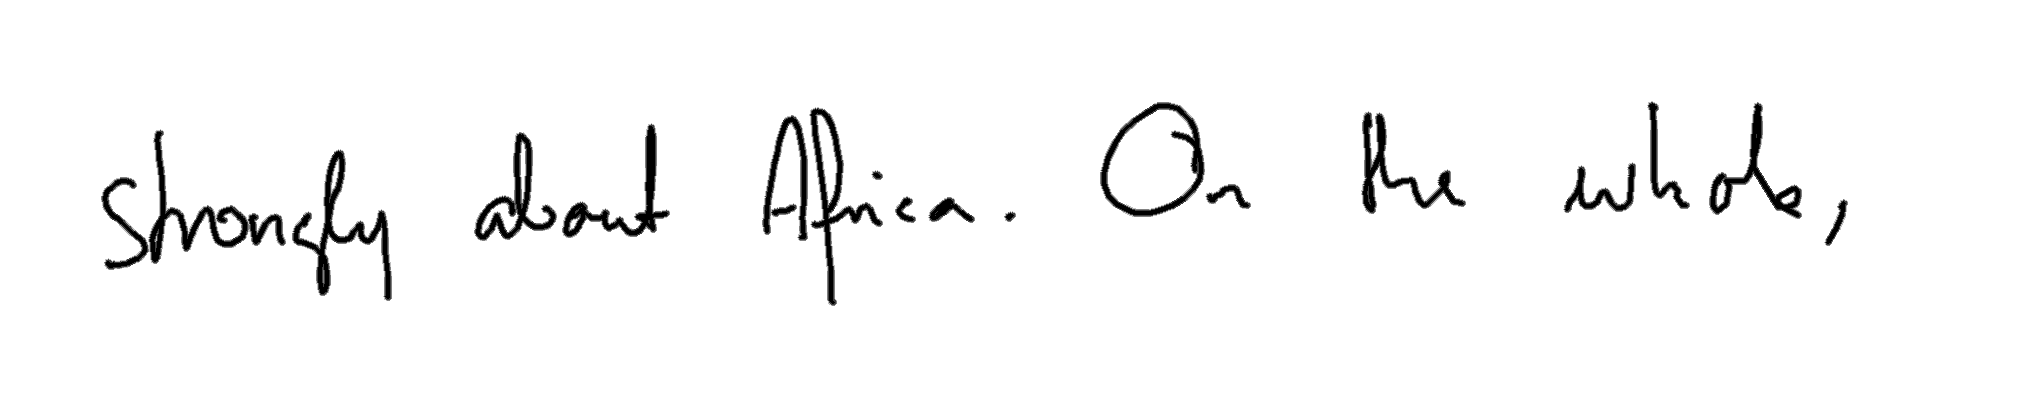 strongly about Africa. On the whole,